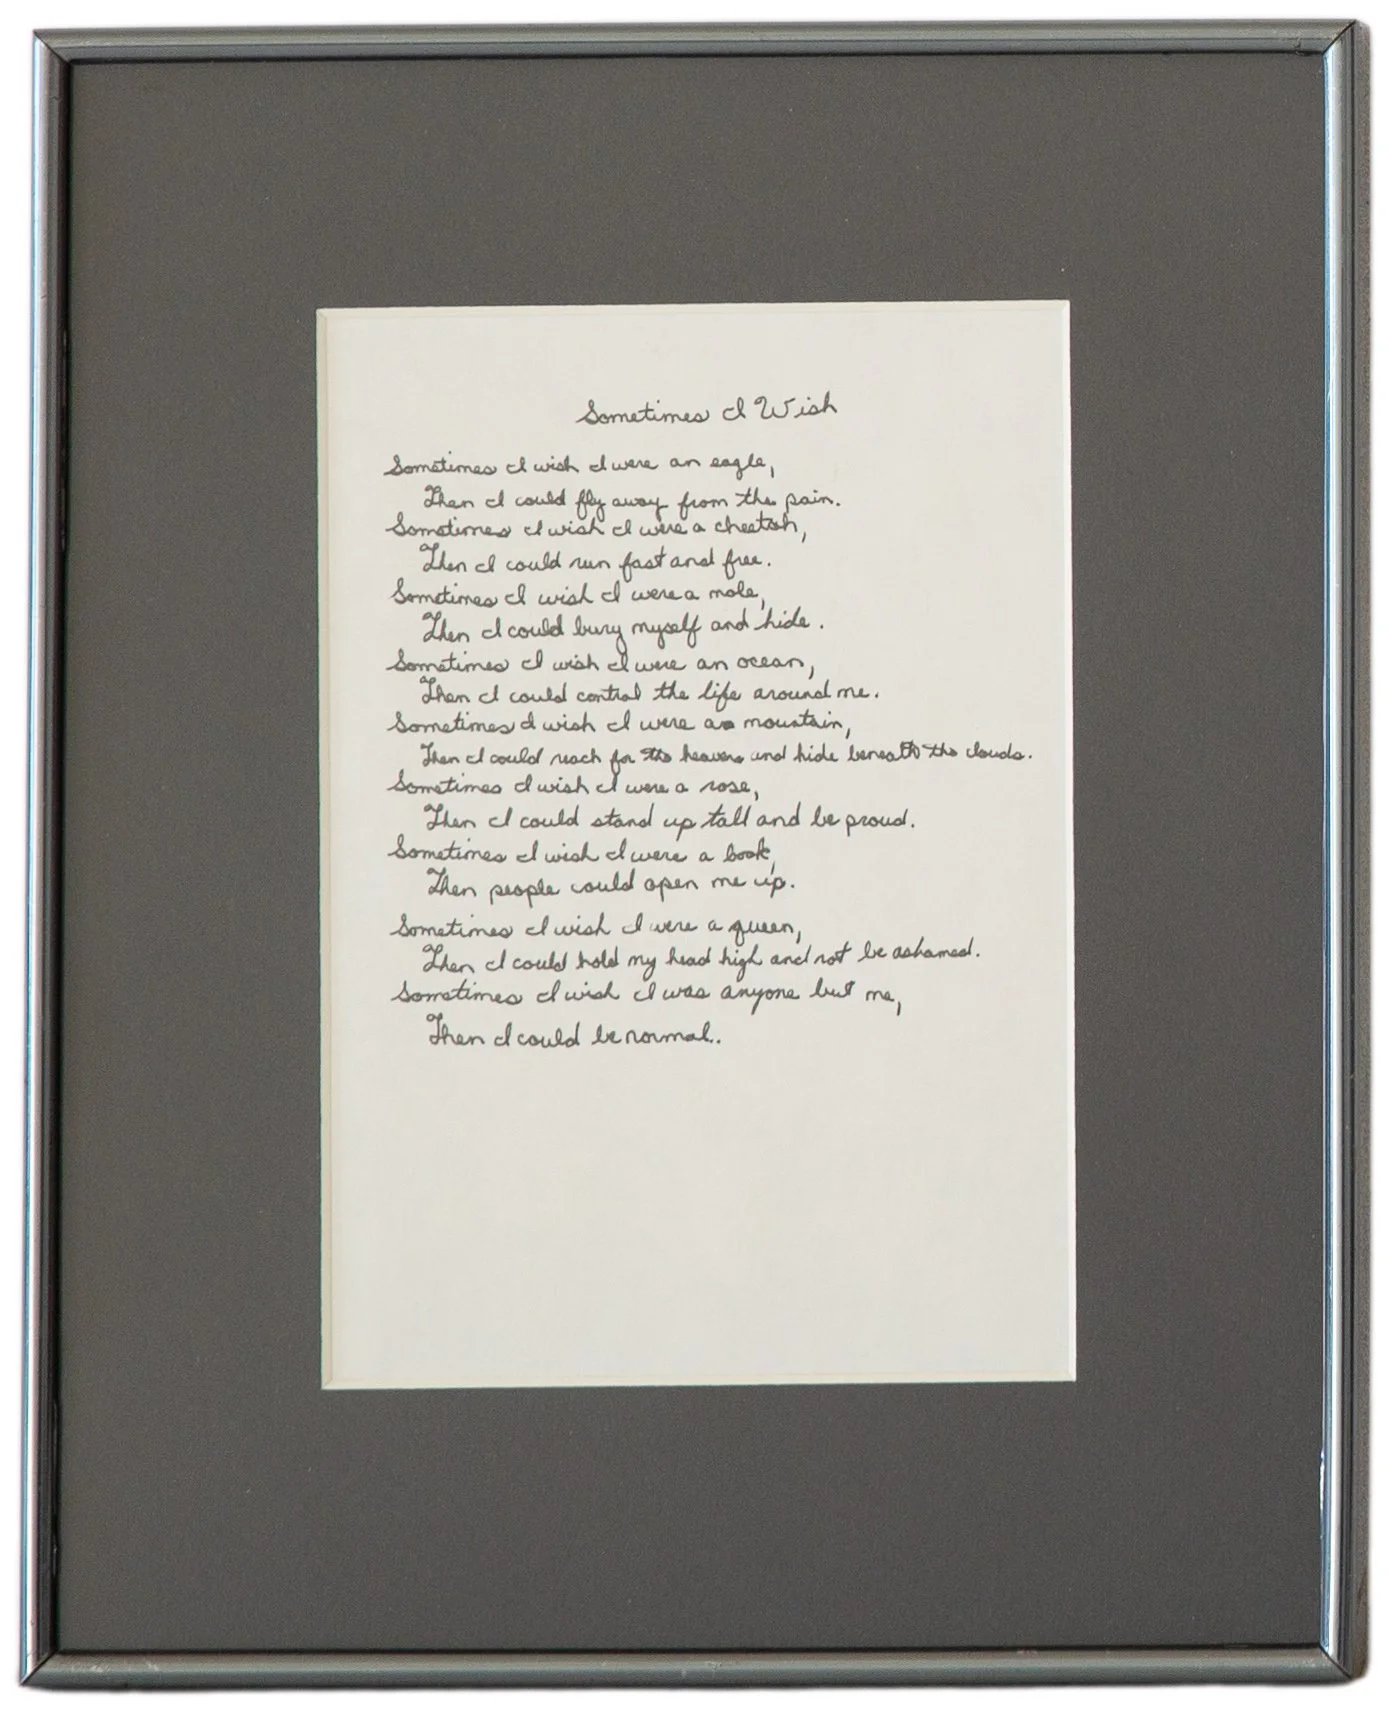 Sometimes I Wish
Sometimes I wish I were an eagle,
Then I could fly away from the pain.
Sometimes I wish I were a cheetah,
Then I could run fast and free.
Sometimes I wish I were a mole,
Then I could bury myself and hide.
Sometimes I wish I were an ocean,
Then I could control the life around me.
Sometimes I wish I were a mountain,
Then I could reach for the heavens and hide beneath the clouds.
Sometimes I wish I were a rose,
Then I could stand up tall and be proud.
Sometimes I wish I were a book,
Then people could open me up.
Sometimes I wish I were a queen,
Then I could hold my head high and not be ashamed.
Sometimes I wish I was anyone but me,
Then I could be normal.